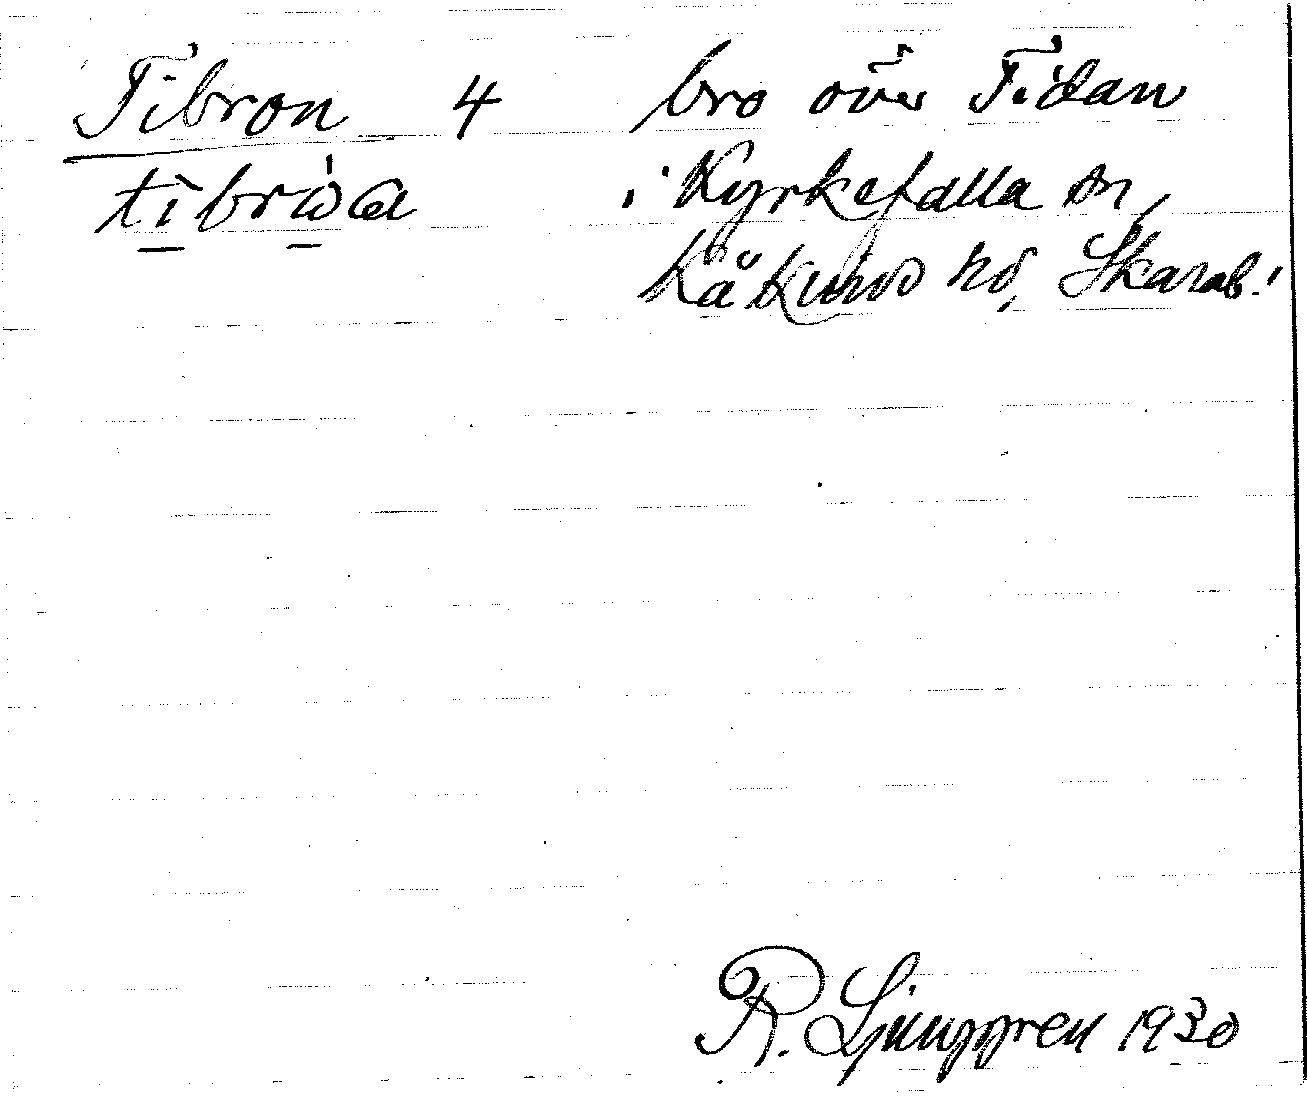 Tibron 4 bro över Tidan
tibrωa i Kyrkefalla sn,
Kåkinds hd, Skarab.
R. Ljunggren 1930